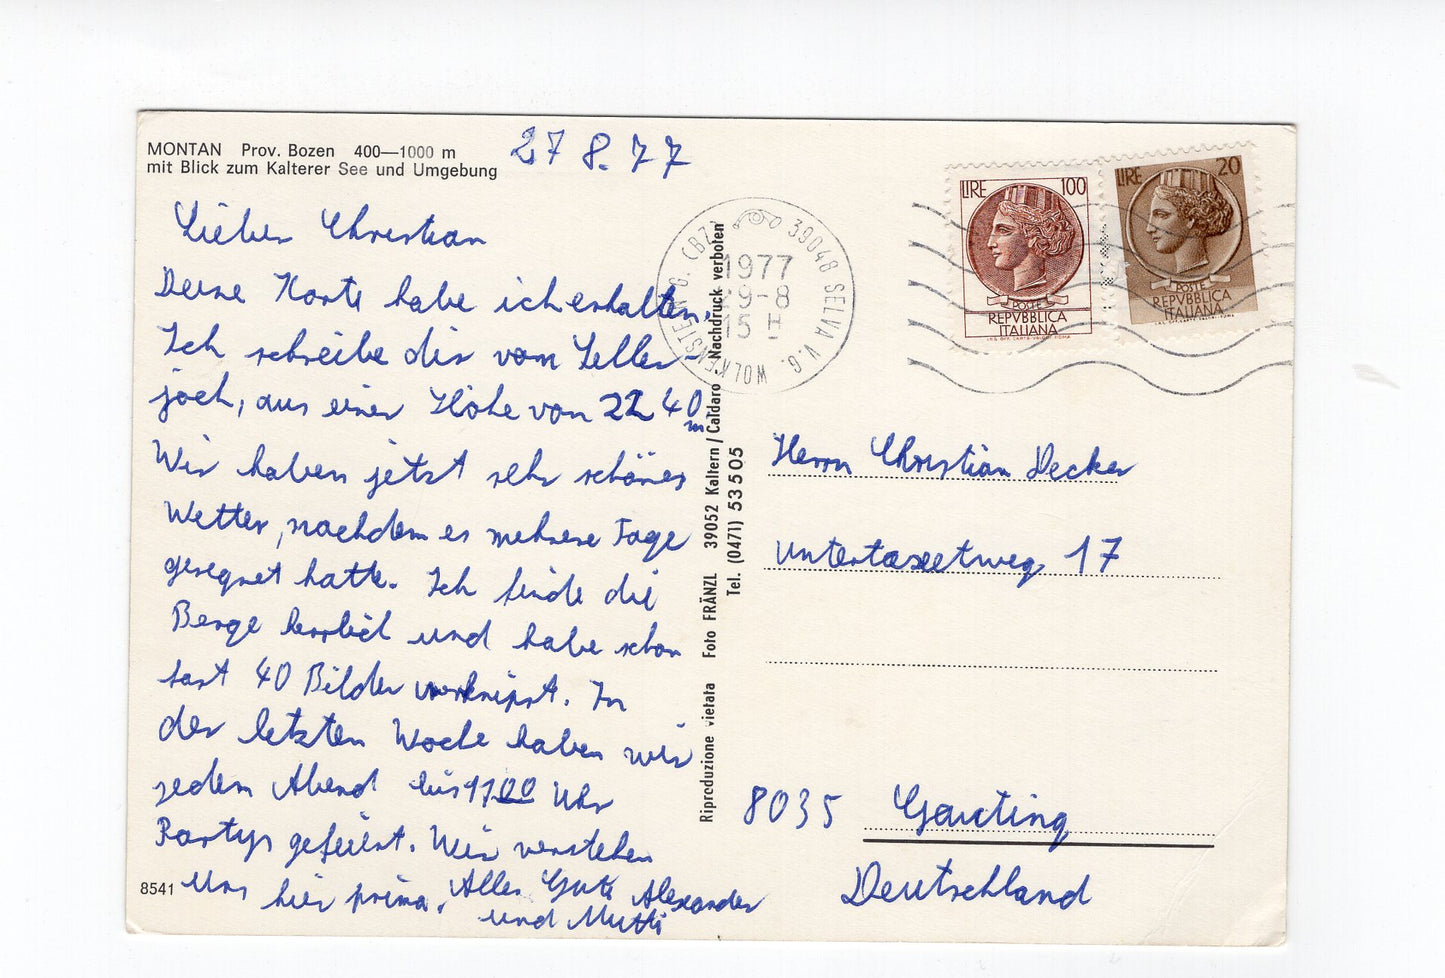 MONTAN Prov. Bozen 400—1000 m
mit Blick zum Kalterer See und Umgebung
27 8. 77
Lieber Christian
Deine Karte habe ich erhalten.
Ich schreibe dir vom Seller-
joch, aus einer Höhe von 2240
m
Wir haben jetzt sehr schönes
Wetter, nachdem es mehrere Tage
geregnet hatte. Ich finde die
Berge herrlich und habe schon
fast 40 Bilder verknipst. In
der letzten Woche haben wir
jeden Abend bis 1100 Uhr
Partys gefeiert. Wir verstehen
uns hier prima. Alles Gute Alexander
und Mutti
8541
Riproduzione vietata Foto FRÄNZL 39052 Kaltern / Caldaro Nachdruck verboten
Tel. (0471) 53505
39048 SELVA V.G. WOLKENSTEIN G. (BZ)
1977
29-8
15 H
LIRE 100
POSTE
REPVBBLICA
ITALIANA
LIRE 20
POSTE
REPVBBLICA
ITALIANA
Herrn Christian Decker
Untertaxetweg 17
8035 Gauting
Deutschland